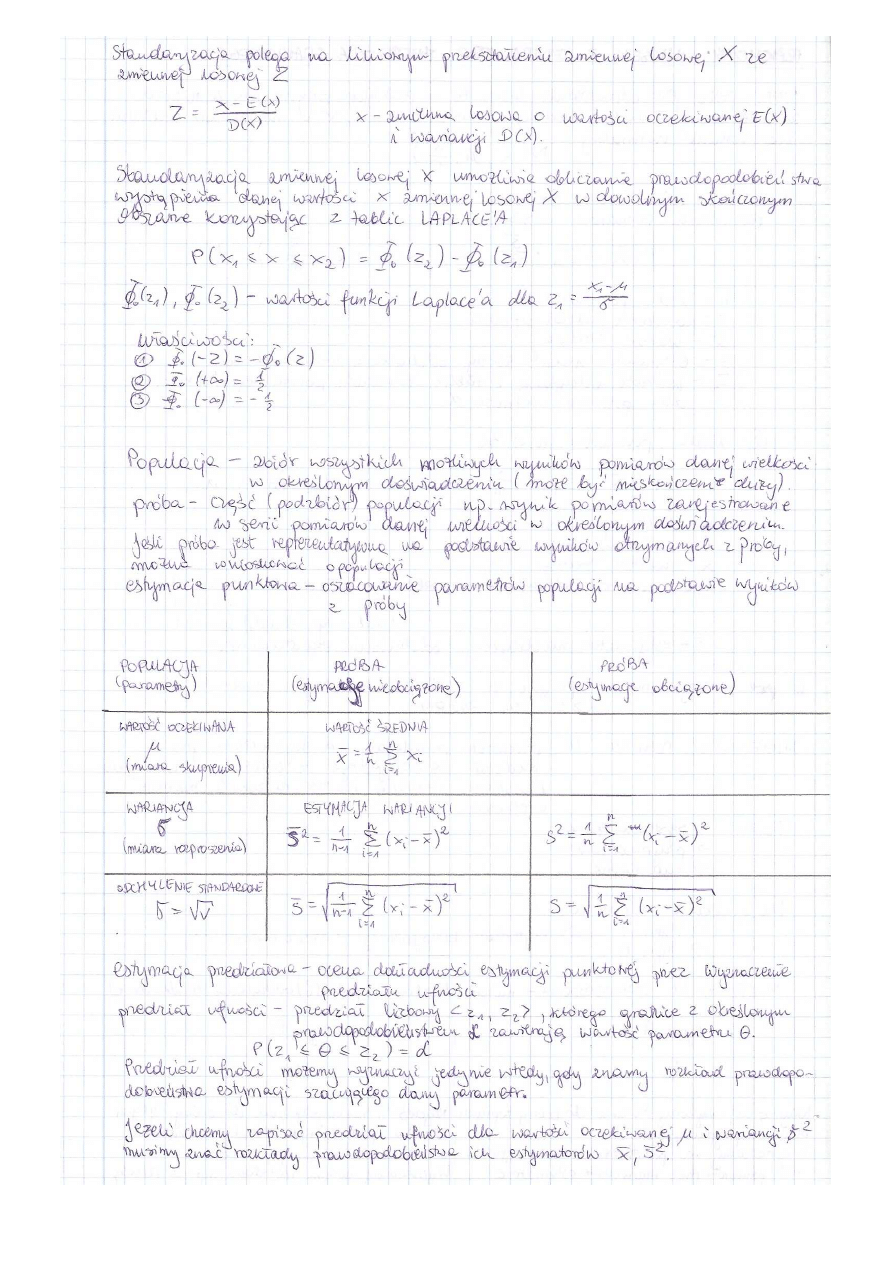 Standaryzacja polega na liniowym przekształceniu zmiennej losowej X ze
zmiennej losowej Z
Z = \frac{X - E(X)}{D(X)} x - zmienna losowa o wartości oczekiwanej E(X)
i wariancji D(X).
Standaryzacja zmiennej losowej X umożliwia obliczanie prawdopodobieństwa
wystąpienia danej wartości x zmiennej losowej X w dowolnym skończonym
obszarze korzystając z tablic LAPLACE'A
P(x₁ ≤ x ≤ x₂) = Φ₀(z₂) - Φ₀(z₁)
Φ₀(z₁), Φ₀(z₂) - wartości funkcji Laplace'a dla z₁ = \frac{x₁-μ}{σ}
właściwości:
① Φ₀(-z) = -Φ₀(z)
② Φ₀(+∞) = ½
③ Φ₀(-∞) = -½
Populacja - zbiór wszystkich możliwych wyników pomiarów danej wielkości
w określonym doświadczeniu (może być nieskończenie duży).
próba - część (podzbiór) populacji np. wynik pomiarów zarejestrowane
w serii pomiarów danej wielkości w określonym doświadczeniu.
Jeśli próba jest reprezentatywna na podstawie wyników otrzymanych z próby,
można wnioskować o populacji
estymacja punktowa - oszacowanie parametrów populacji na podstawie wyników
z próby
POPULACJA PRÓBA PRÓBA
(parametry) (estymacje nieobciążone) (estymacje obciążone)
WARTOŚĆ OCZEKIWANA WARTOŚĆ ŚREDNIA
μ x̄ = \frac{1}{n} \sum_{i=1}^{n} x_i
(miara skupienia)
WARIANCJA ESTYMACJA WARIANCJI
σ s̄² = \frac{1}{n-1} \sum_{i=1}^{n} (x_i - x̄)² s² = \frac{1}{n} \sum_{i=1}^{n} (x_i - x̄)²
(miara rozproszenia)
ODCHYLENIE STANDARDOWE
σ = √V s̄ = \sqrt{\frac{1}{n-1} \sum_{i=1}^{n} (x_i - x̄)²} s = \sqrt{\frac{1}{n} \sum_{i=1}^{n} (x_i - x̄)²}
estymacja przedziałowa - ocena dokładności estymacji punktowej przez wyznaczenie
przedziału ufności
przedział ufności - przedział liczbowy <z₁, z₂>, którego granice z określonym
prawdopodobieństwem α zawierają wartość parametru θ.
P(z₁ ≤ θ ≤ z₂) = α
Przedział ufności możemy wyznaczyć jedynie wtedy, gdy znamy rozkład prawdopo-
dobieństwa estymacji szacującego dany parametr.
Jeżeli chcemy zapisać przedział ufności dla wartości oczekiwanej μ i wariancji σ²
musimy znać rozkłady prawdopodobieństwa ich estymatorów x̄, s̄².